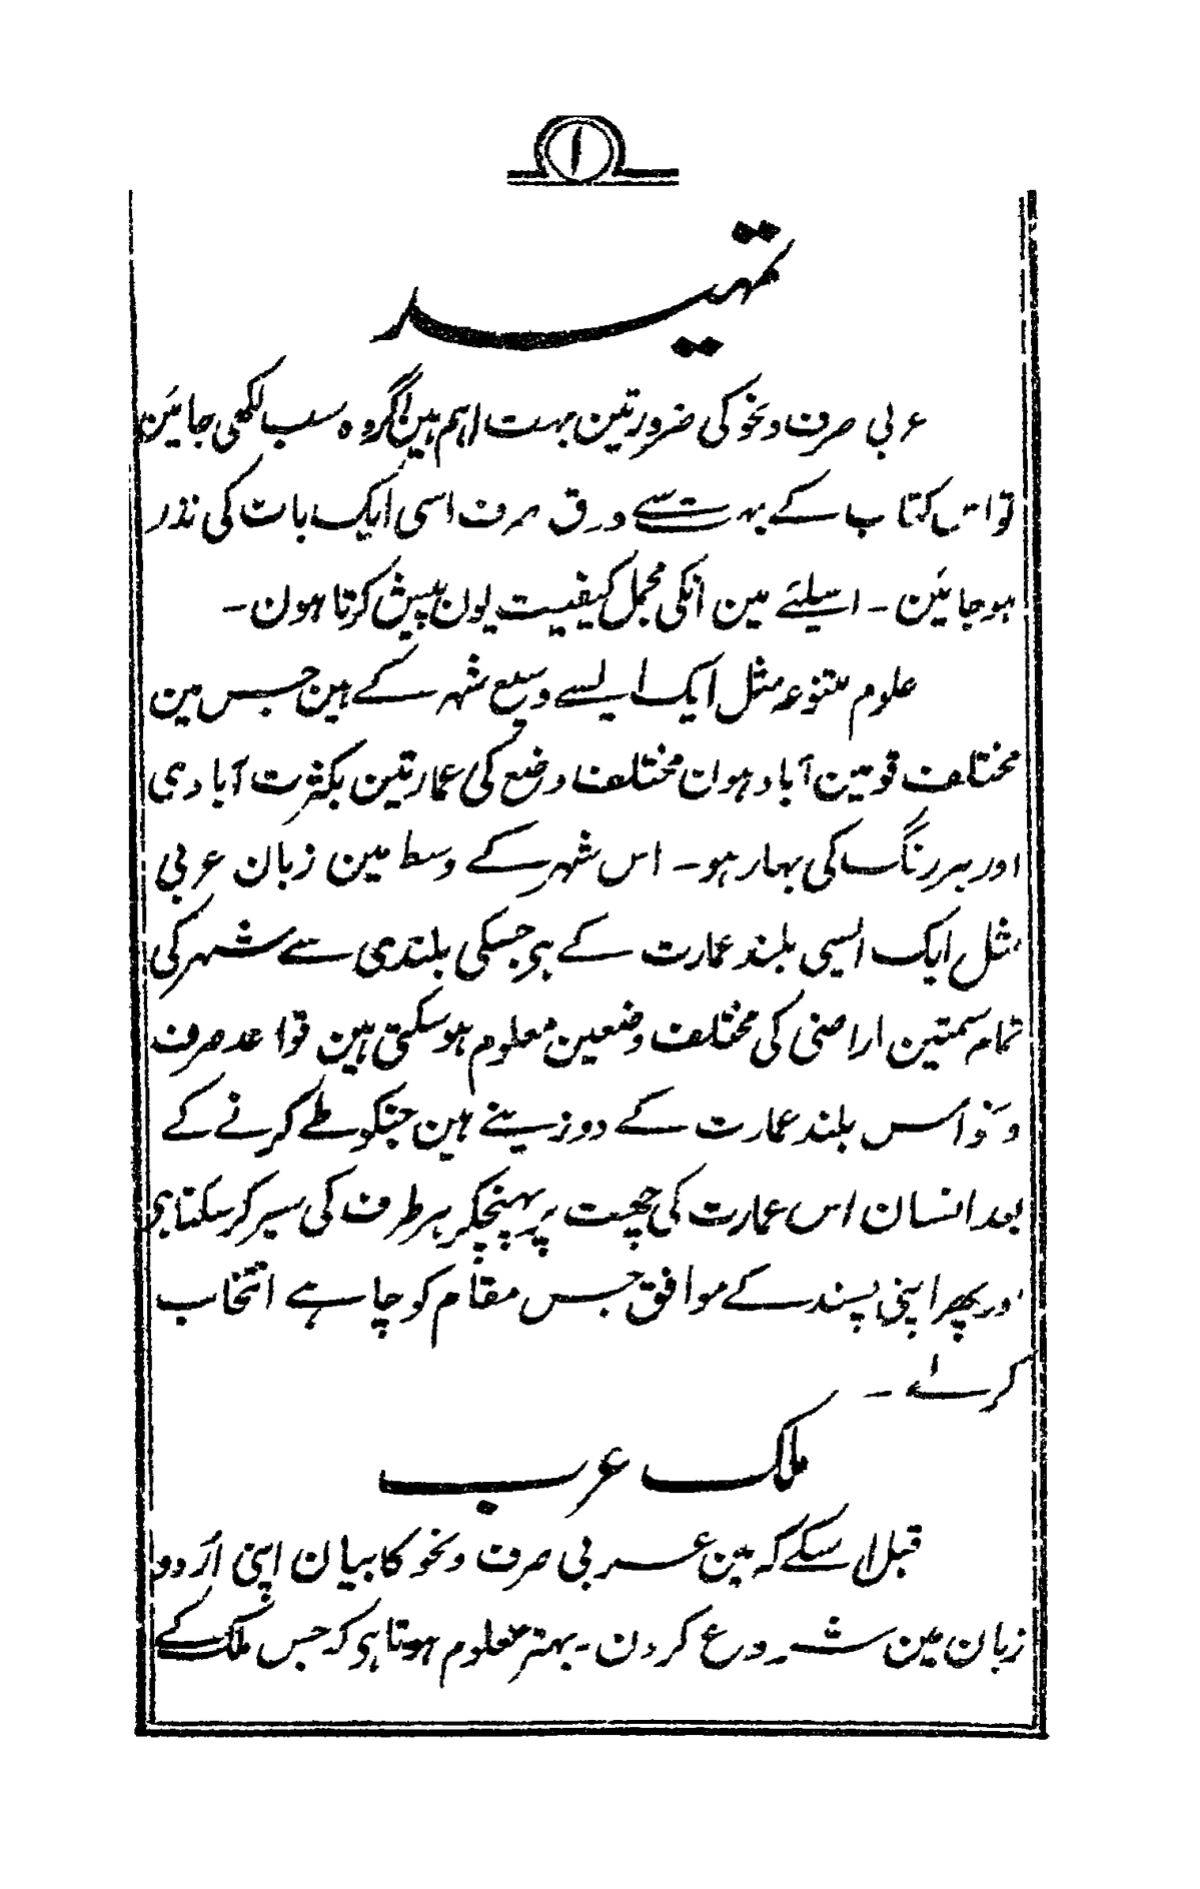 ۱
تمہید
عربی صرف ونحو کی ضرورتین بہت اہم ہین اگر وہ سب لکھی جائین
تو اس کتاب کے بہت سے ورق صرف اسی ایک بات کی نذر
ہوجائین - اسیلئے مین انکی مجمل کیفیت یون پیش کرتا ہون -
علوم متنوعہ مثل ایک ایسے وسیع شہر کے ہین جس مین
مختلف قومین آباد ہون مختلف وضع کی عمارتین بکثرت آبادی
اور ہر رنگ کی بہار ہو - اس شہر کے وسط مین زبان عربی
مثل ایک ایسی بلند عمارت کے ہی جسکی بلندی سے شہر کی
تمام سمتین اراضی کی مختلف وضعین معلوم ہوسکتی ہین قواعد صرف
و نحو اس بلند عمارت کے دو زینے ہین جنکو طے کرنے کے
بعد انسان اس عمارت کی چھت پر پہنچکر ہر طرف کی سیر کرسکتا ہی
اور پھر اپنی پسند کے موافق جس مقام کو چاہے انتخاب
کرلے -
ملک عرب
قبل اسکے کہ مین عربی صرف ونحو کا بیان اپنی اُردو
زبان مین شروع کردن - بہتر معلوم ہوتا ہی کہ جس ملک کے